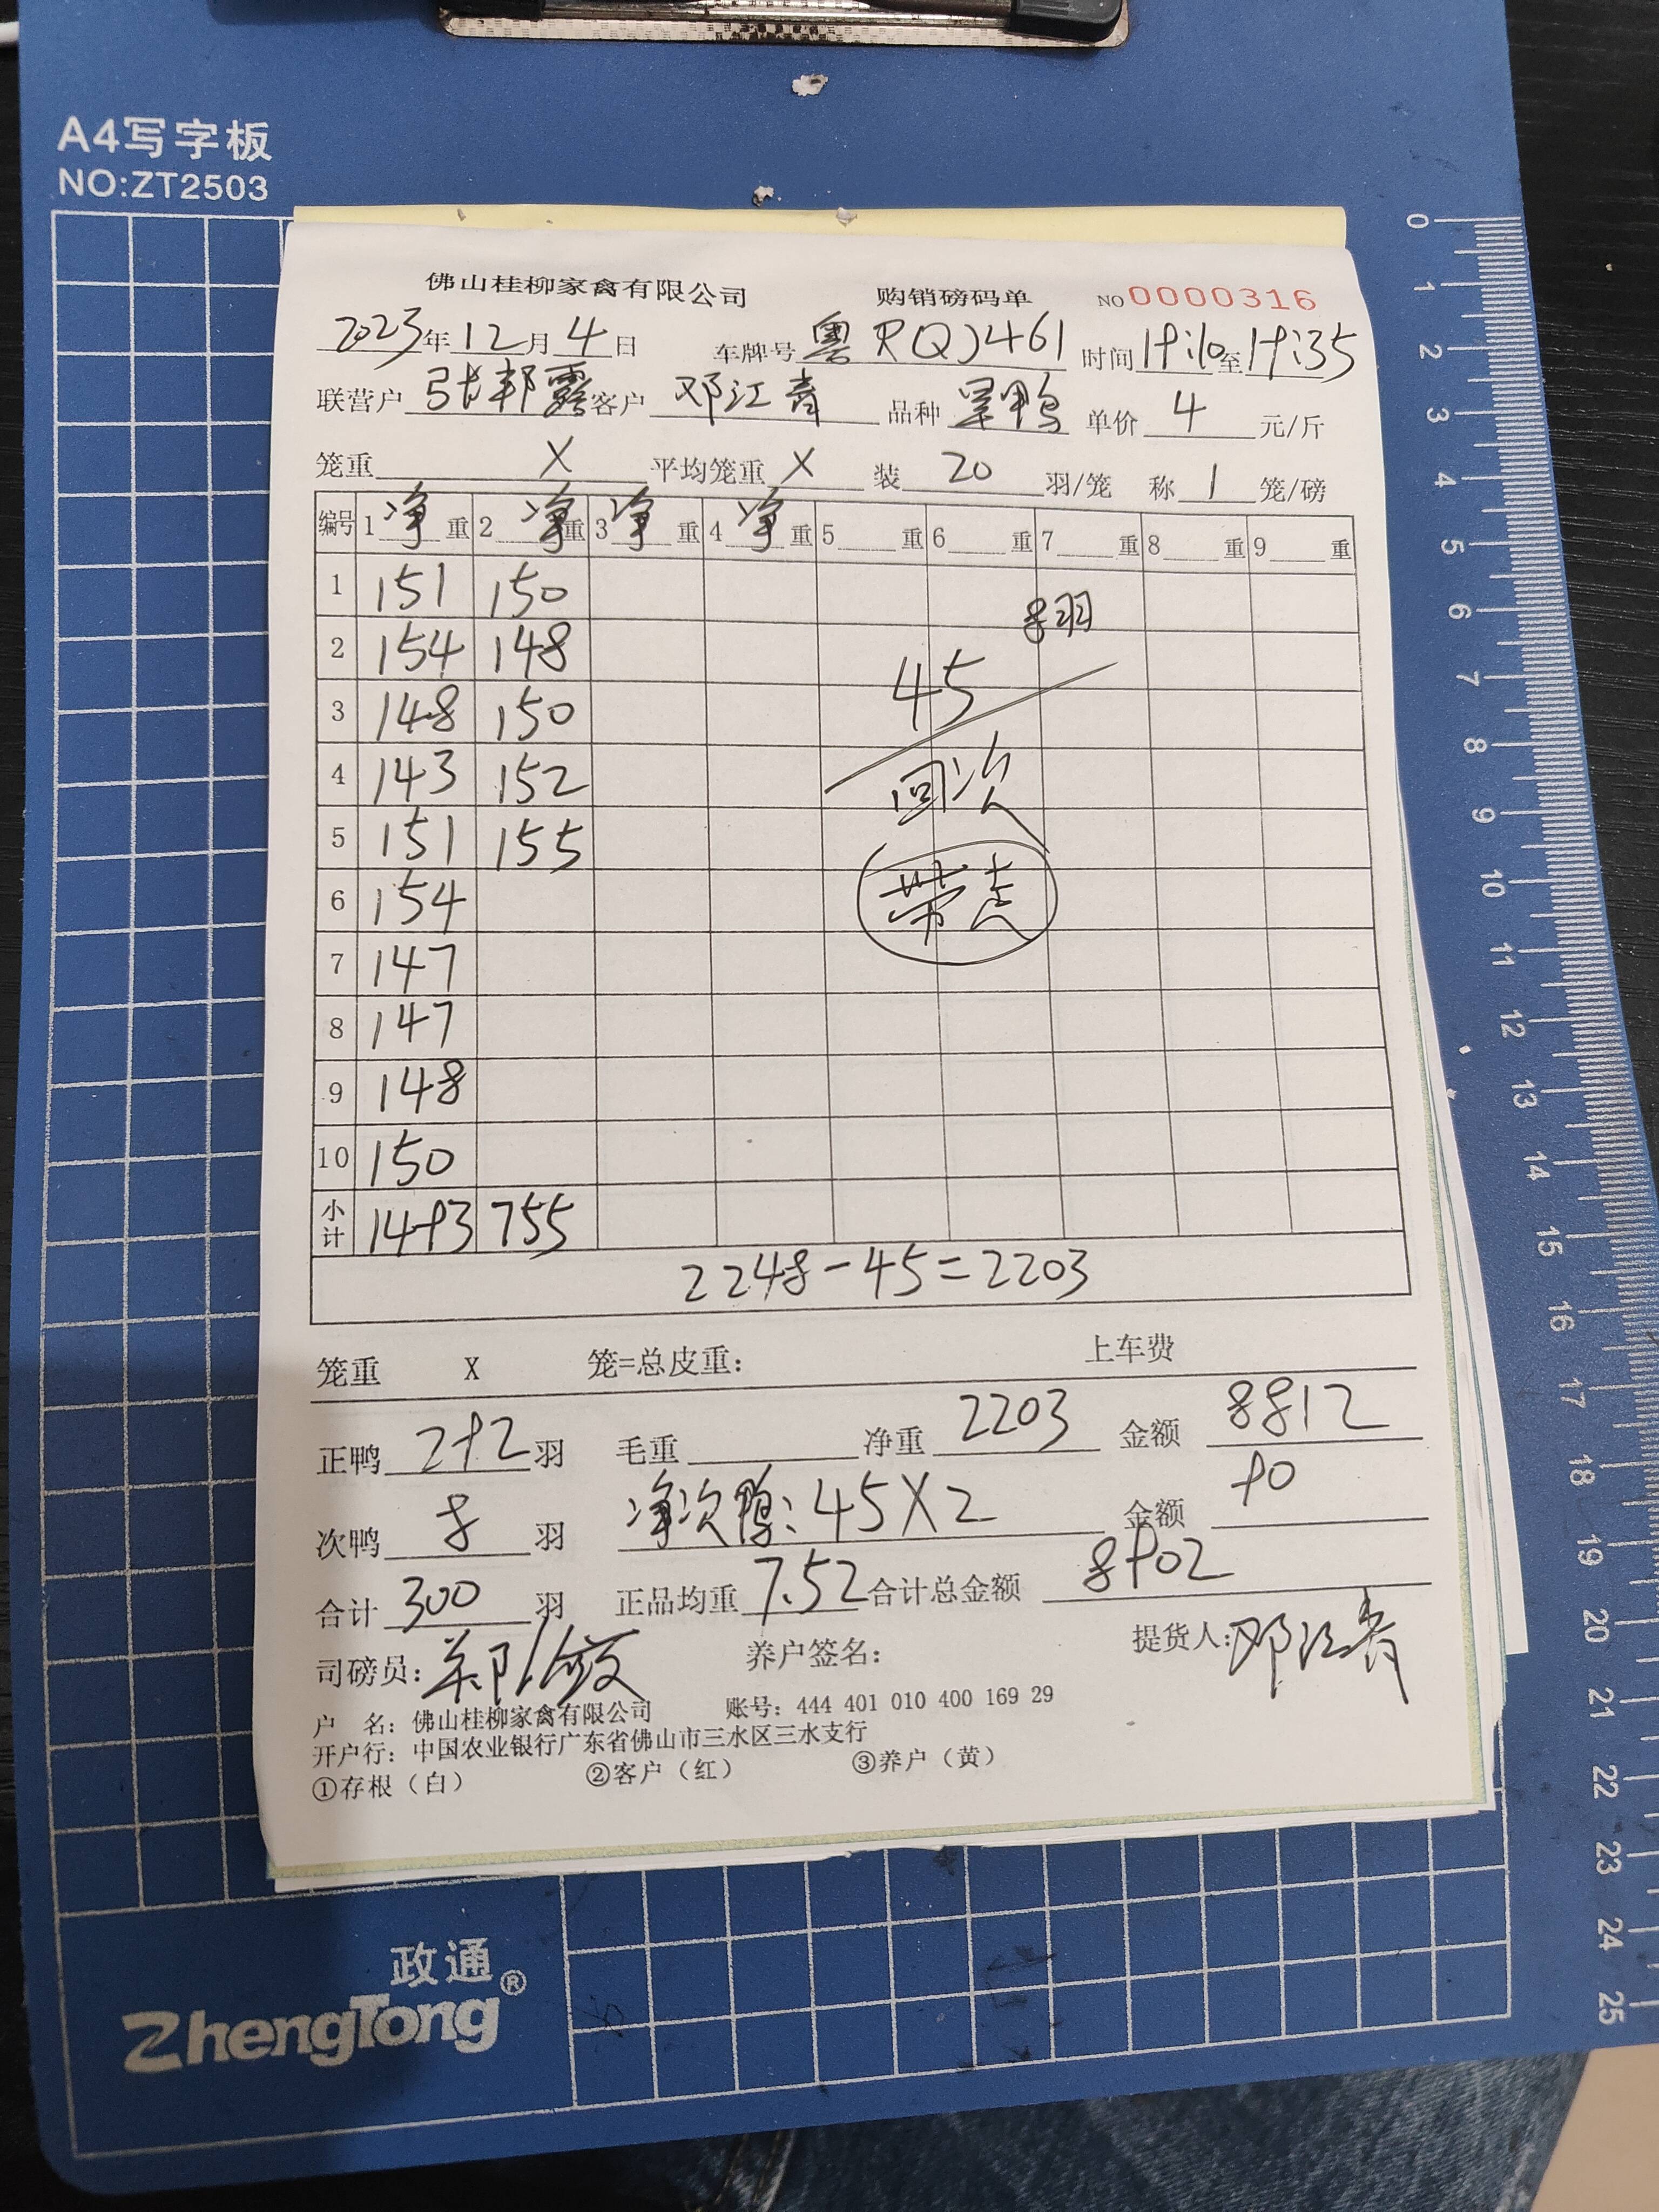 A4写字板
NO:ZT2503
佛山桂柳家禽有限公司 购销磅码单 NO 0000316
2023年12月4日 车牌号 粤RQJ461 时间19:10至19:35
联营户 张邦露 客户 邓江青 品种 旱鸭 单价 4 元/斤
笼重 X 平均笼重 X 装 20 羽/笼 称 1 笼/磅
编号 1 净 重 2 净 重 3 净 重 4 净 重 5 重 6 重 7 重 8 重 9 重
1 151 150
8羽
2 154 148
45
3 148 150
4 143 152
回次
5 151 155
6 154
带走
7 147
8 147
9 148
10 150
小计 1493 755
2248-45=2203
笼重 X 笼=总皮重: 上车费
正鸭 292 羽 毛重 净重 2203 金额 8812
次鸭 8 羽 净次鸭:45X2 金额 90
合计 300 羽 正品均重 7.52 合计总金额 8902
司磅员: 养户签名: 提货人:邓江青
户 名: 佛山桂柳家禽有限公司 账号: 444 401 010 400 169 29
开户行: 中国农业银行广东省佛山市三水区三水支行
①存根(白) ②客户(红) ③养户(黄)
0
1
2
3
4
5
6
7
8
9
10
11
12
13
14
15
16
17
18
19
20
21
22
23
24
25
政通®
ZhengTong